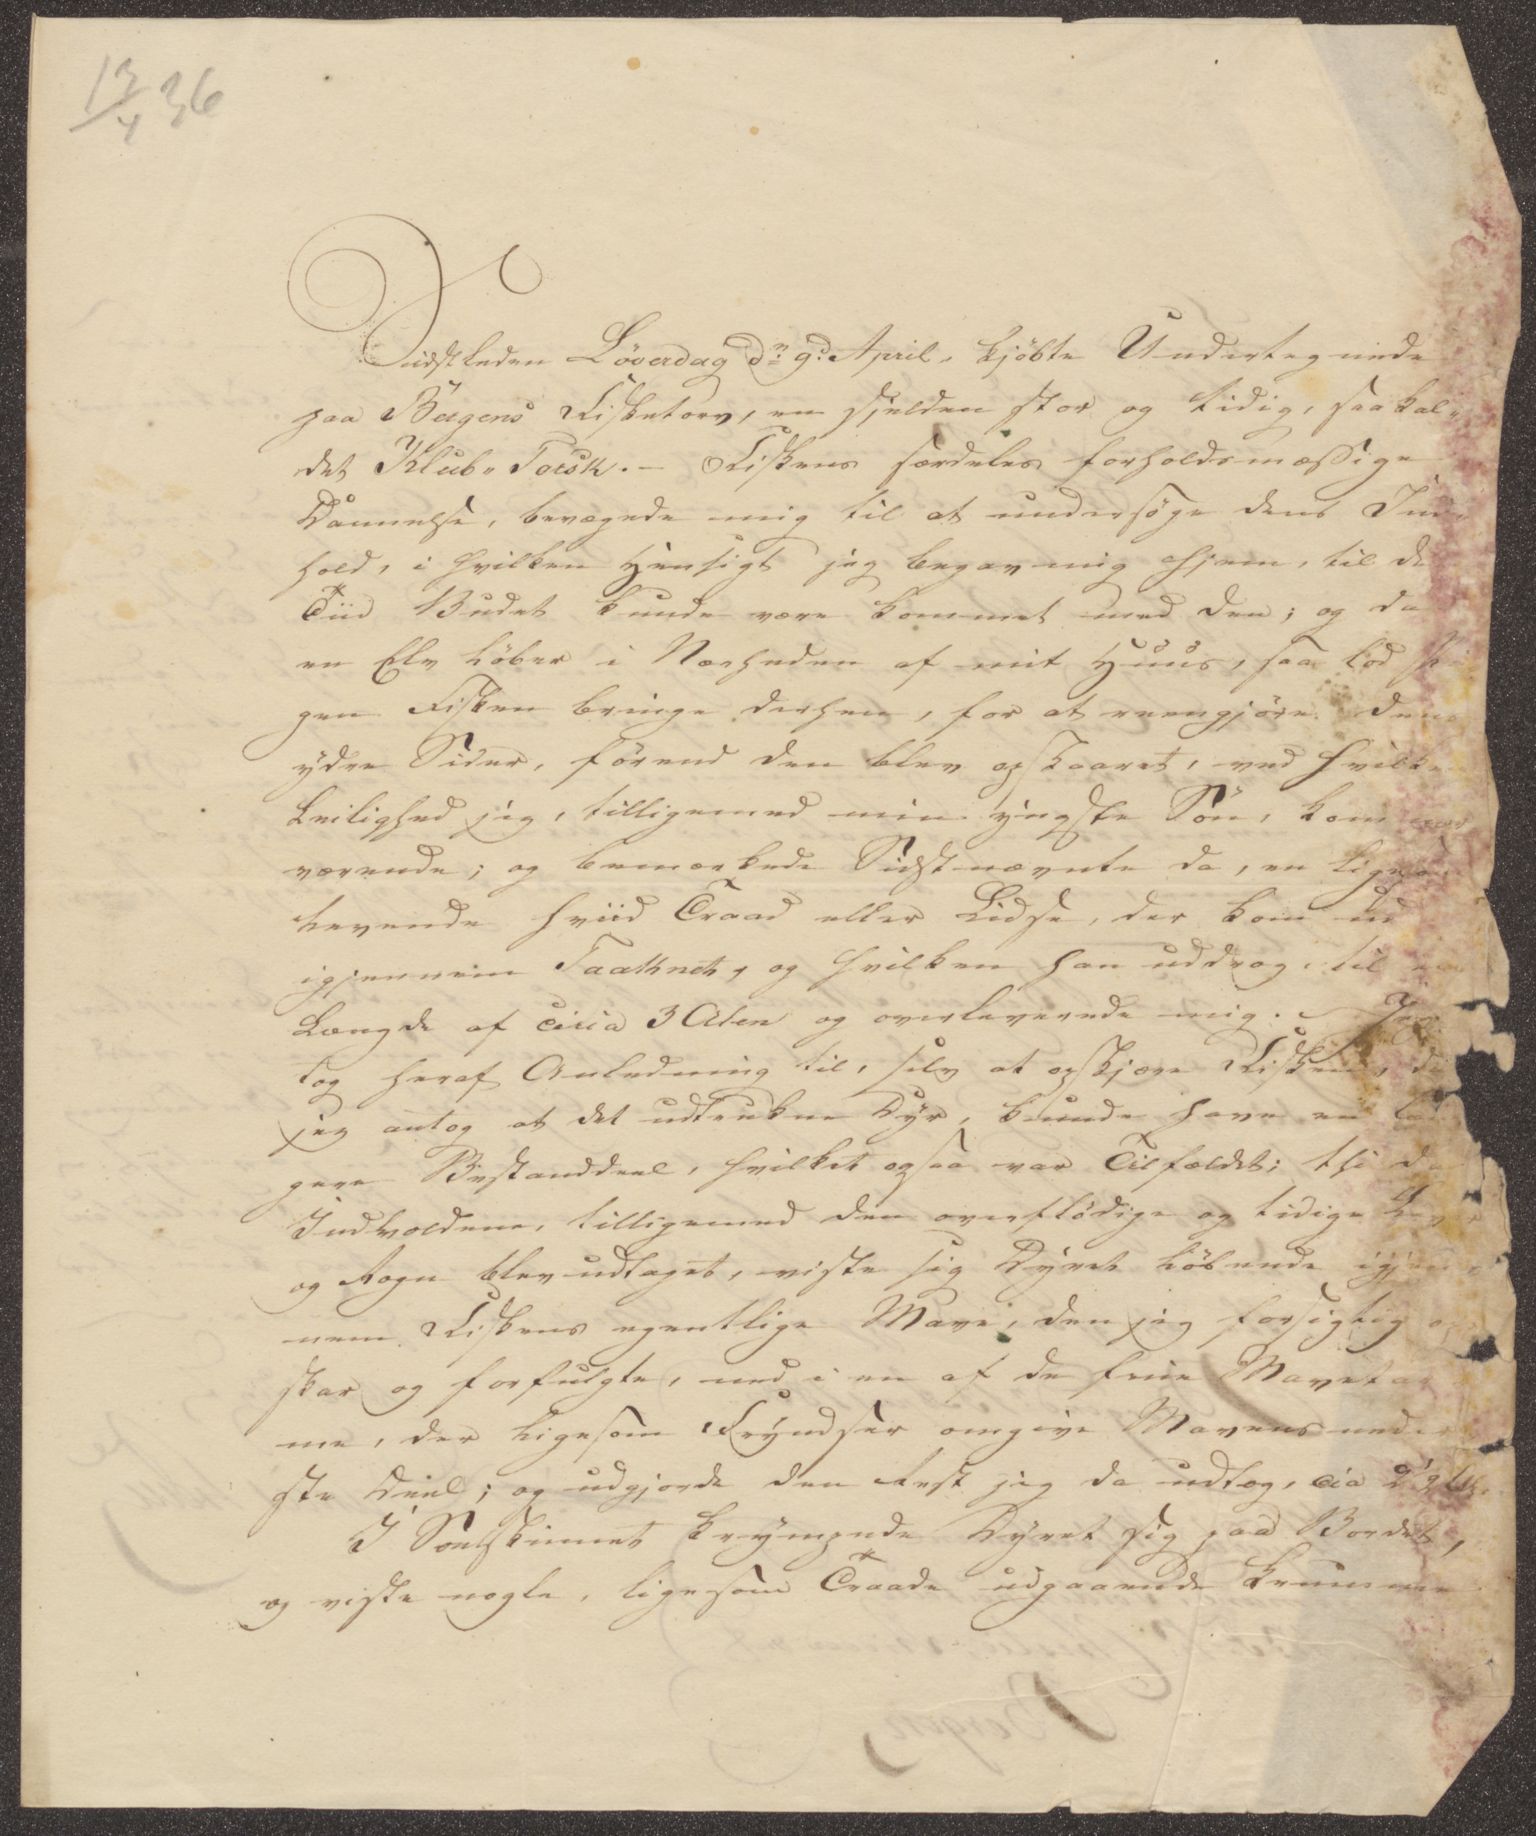 13/4 36
Sidstleden Löverdag dn 9d April, kjöbte Undertegnede
paa Bergens Fisketorv, en sjelden stor og tidig, saakal-
det Klub-Torsk. - Fiskens særdeles forholdsmæssige
Dannelse, bevægede mig til at undersöge dens Ind-
hold, i hvilken Hensigt jeg begav mig hjem, til de
Tiid Budet kunde være kommet med den; og da
en Elv löber i Nærheden af mit Huus, saa lod
gen Fisken bringe derhen, for at reengjöre dens
ydre Sider, förend den blev opskaaret, ved hvilke
Leilighed jeg, tilligemed min yngste Sön, kom
værende; og bemærkede Sidstnævnte da, en ligesom
levende hviid Traad eller Lidse, der kom ud
igjennem Gatthuet, og hvilken han uddrog, til en
Længde af circa 3 Alen og overleverede mig. - Jeg
tog heraf Anledning til, selv at opskjære Fisken, da
jeg antog at det udtrukne Dyr, kunde have en læn
gere Bestanddeel, hvilket ogsaa var Tilfældet; thi da
Indvoldene, tilligemed den overflödige og tidige Lever
og Rogn blev udtaget, viste sig Dyret löbende igjen-
nem Fiskens egentlige Mave, den jeg forsigtig op
skar og forfulgte, ned i en af de fine Mavetar
me, der ligesom Fryndser omgive Mavens neder
ste Deel; og udgjorde den Rest jeg da udtog, cia 2½ Al.
I Soelskinnet krympede Dyret sig paa Bordet,
og viste nogle, ligesom Traade udgaaende krumme